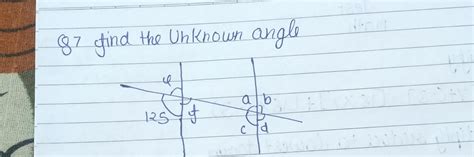 Q7 find the Unknown angle
e
a b
125 f
c d